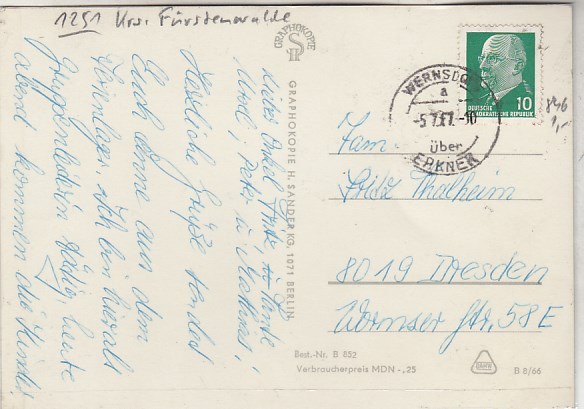 1251 Krs. Fürstenwalde
Guter Onkel Fritz, Tante
Urсel, Peter u Mathias,
Herzliche Grüße sendet
Euch Senne aus dem
Ferienlager. Ich bin hier als
Gruppenleiterin tätig, heute
abend kommen die Kinder
GRAPHOKOPIE
GRAPHOKOPIE H. SANDER KG, 1071 BERLIN
DEUTSCHE
DEMOKRATISCHE REPUBLIK
10
WERNSDORF
a
-5.7.67.-10
über
ERKNER
846
1,-
Fam.
Fritz Thalheim
8019 Dresden
Wormser Str. 58 E
Best.-Nr. B 852
Verbraucherpreis MDN -,25
B 8/66